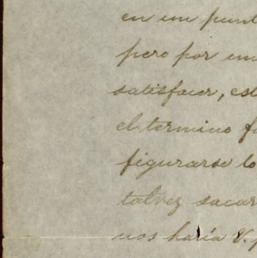 en un punt
pero por un
satisfacer, es
el termino f
figurarse lo
talvez sacar
nos haría V. p